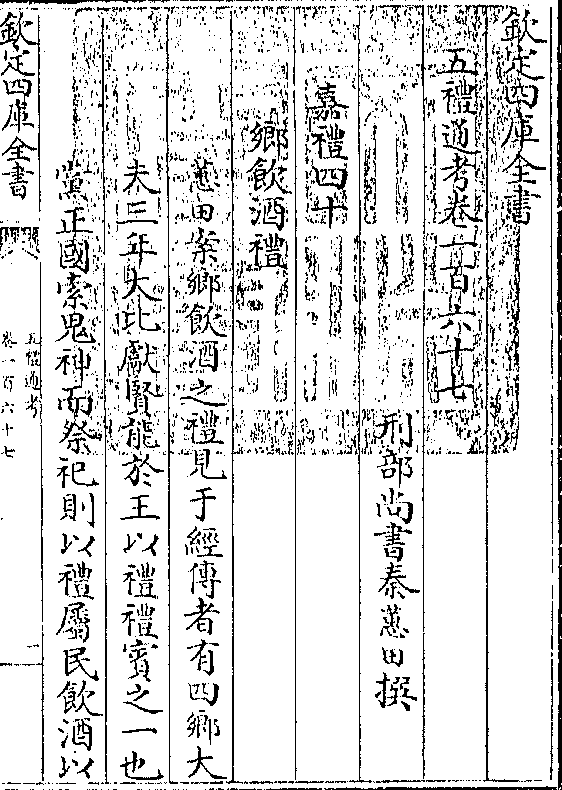 欽定四庫全書
五禮通考卷一百六十七
刑部尚書秦蕙田撰
嘉禮四十
鄉飲酒禮
蕙田案鄉飲酒之禮見于經傳者有四鄉大
夫三年大比獻賢能於王以禮禮賓之一也
黨正國索鬼神而祭祀則以禮屬民飲酒以
欽定四庫全書
五禮通考
卷一百六十七
一